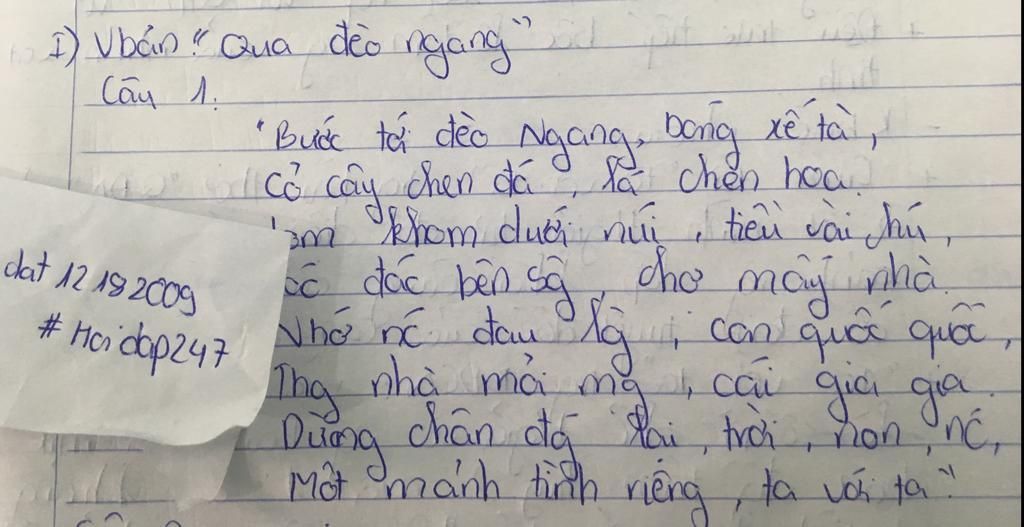 I) Vbản "Qua đèo ngang"
Câu 1.
"Bước tới đèo Ngang, bóng xế tà,
Cỏ cây chen đá, lá chen hoa.
om khom dưới núi, tiều vài chú,
ác đác bên sg, chợ mấy nhà.
Nhớ nc đau lg, con quốc quốc,
Thg nhà mỏi mg, cái gia gia.
Dừng chân đg lại, trời, non, nc,
Một mảnh tình riêng, ta với ta"
dat12182009
#Hoidap247